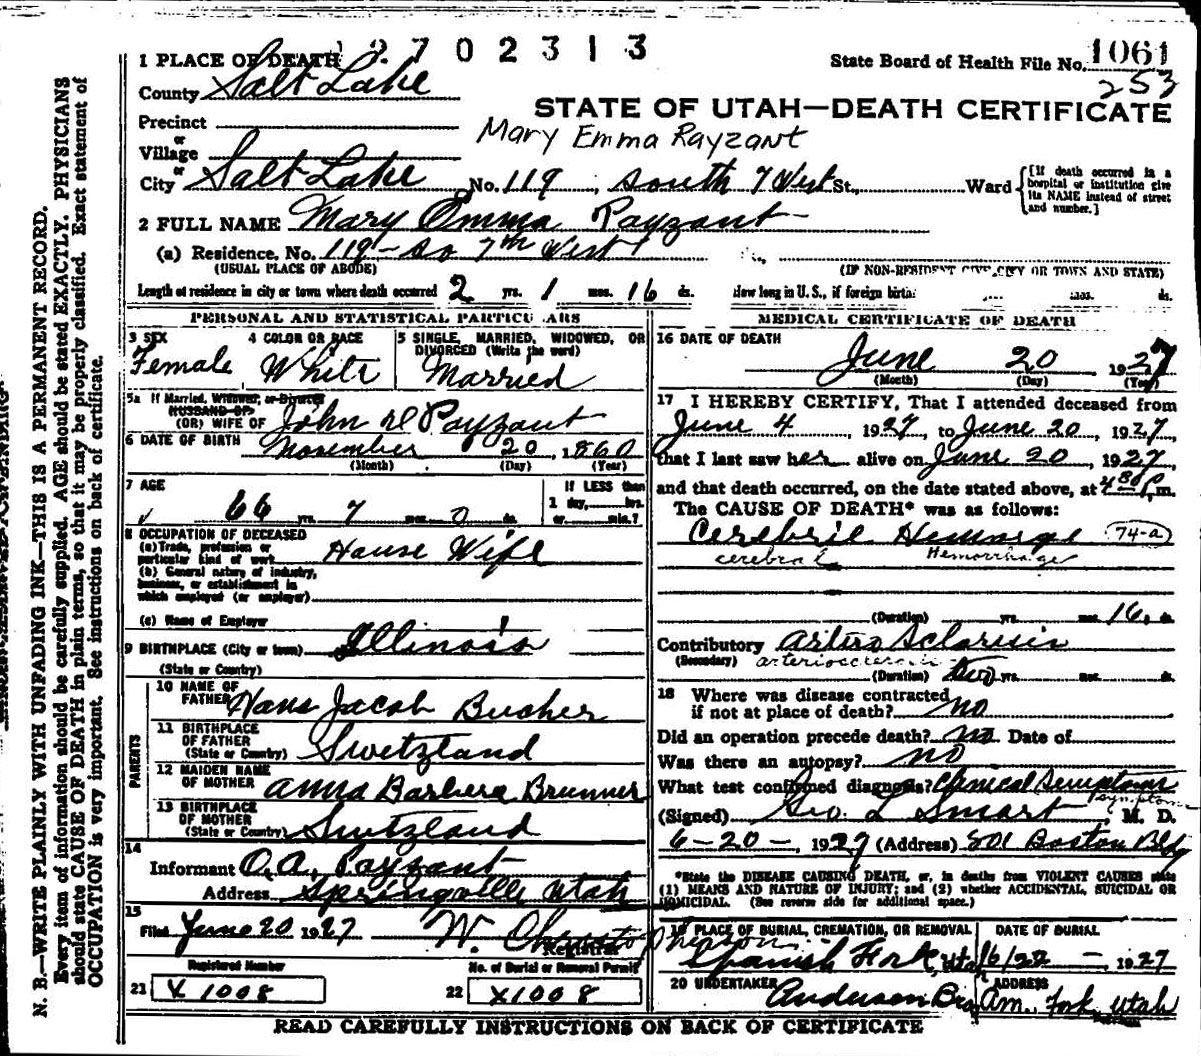 2702313
1 PLACE OF DEATH
State Board of Health File No. 1061
253
County Salt Lake
STATE OF UTAH—DEATH CERTIFICATE
Precinct
or
Village
Mary Emma Rayzant
or
City Salt Lake No. 119, South 7 West St., Ward
[If death occurred in a hospital or institution give its NAME instead of street and number.]
2 FULL NAME Mary Emma Payzant
(a) Residence. No. 119 - So 7th West
(USUAL PLACE OF ABODE)
(IF NON-RESIDENT GIVE CITY OR TOWN AND STATE)
Length of residence in city or town where death occurred 2 yrs. 1 mos. 16 ds.
How long in U. S., if foreign birth mos. ds.
PERSONAL AND STATISTICAL PARTICULARS
3 SEX Female
4 COLOR OR RACE White
5 SINGLE, MARRIED, WIDOWED, OR DIVORCED (Write the word) Married
5a If Married, Widowed, or Divorced
HUSBAND OF
(OR) WIFE OF John D Payzant
6 DATE OF BIRTH November 20, 1860
(Month) (Day) (Year)
7 AGE 66 yrs. 7 mos. 0 ds.
If LESS than 1 day, hrs. or min.?
8 OCCUPATION OF DECEASED
(a) Trade, profession or particular kind of work House Wife
(b) General nature of industry, business, or establishment in which employed (or employer)
(c) Name of Employer
9 BIRTHPLACE (City or town) Illinois
(State or Country)
PARENTS
10 NAME OF FATHER Hans Jacob Bucher
11 BIRTHPLACE OF FATHER (State or Country) Swetzland
12 MAIDEN NAME OF MOTHER Anna Barbera Brunner
13 BIRTHPLACE OF MOTHER (State or Country) Switzland
14
Informant O. A. Payzant
Address Springville Utah
15
Filed June 20 1927 W. Christopherson
Registrar
Registered Number
21 X 1008
No. of Burial or Removal Permit
22 X1008
MEDICAL CERTIFICATE OF DEATH
16 DATE OF DEATH
June 20 1927
(Month) (Day) (Year)
17 I HEREBY CERTIFY, That I attended deceased from
June 4, 1927, to June 20, 1927,
that I last saw her alive on June 20, 1927,
and that death occurred, on the date stated above, at 4 30 p. m.
The CAUSE OF DEATH* was as follows:
Cerebril Hemorage 74-a
cerebral Hemorrhage
(Duration) yrs. mos. 16, ds.
Contributory Arterio Sclorusis
(Secondary) arteriosclerosis
(Duration) two yrs. mos. ds.
18 Where was disease contracted
if not at place of death? no
Did an operation precede death? no Date of
Was there an autopsy? no
What test confirmed diagnosis? Clinical Semptoms
Symptoms
(Signed) Geo. L Smart, M. D.
6-20-, 1927 (Address) 801 Boston Bldg
*State the DISEASE CAUSING DEATH, or, in deaths from VIOLENT CAUSES state
(1) MEANS AND NATURE OF INJURY; and (2) whether ACCIDENTAL, SUICIDAL OR
HOMICIDAL. (See reverse side for additional space.)
19 PLACE OF BURIAL, CREMATION, OR REMOVAL Spanish Fork, Utah
DATE OF BURIAL 6/22 - 1927
20 UNDERTAKER Anderson Bros
ADDRESS Am. Fork, Utah
READ CAREFULLY INSTRUCTIONS ON BACK OF CERTIFICATE
N. B.—WRITE PLAINLY WITH UNFADING INK—THIS IS A PERMANENT RECORD.
Every item of information should be carefully supplied. AGE should be stated EXACTLY. PHYSICIANS
should state CAUSE OF DEATH in plain terms, so that it may be properly classified. Exact statement of
OCCUPATION is very important. See instructions on back of certificate.